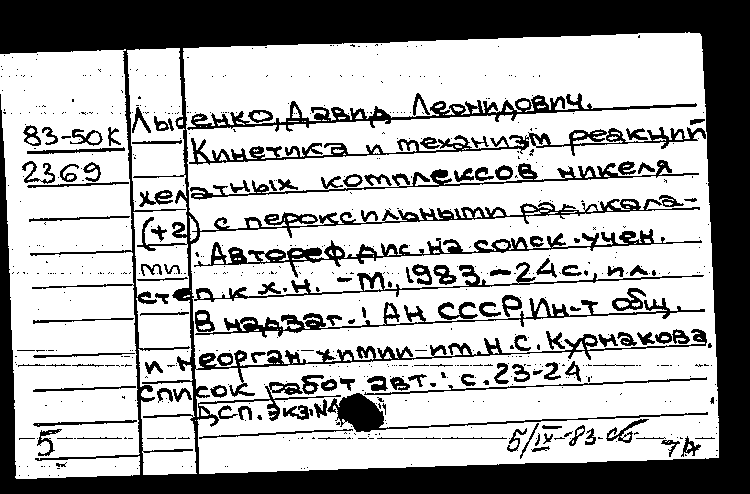 Лысенко, Давид Леонидович.
83-50К
Кинетика и механизм реакций
2369
хелатных комплексов никеля
(+2) с пероксильными радикала-
ми : Автореф. дис. на соиск. учен.
степ. к х.н. - М., 1983. - 24 с., ил.
В надзаг.: АН СССР, Ин-т общ.
и неорган. химии им. Н.С. Курнакова.
Список работ авт.: с. 23-24.
ДСП. Экз. №
5
5/IX-83